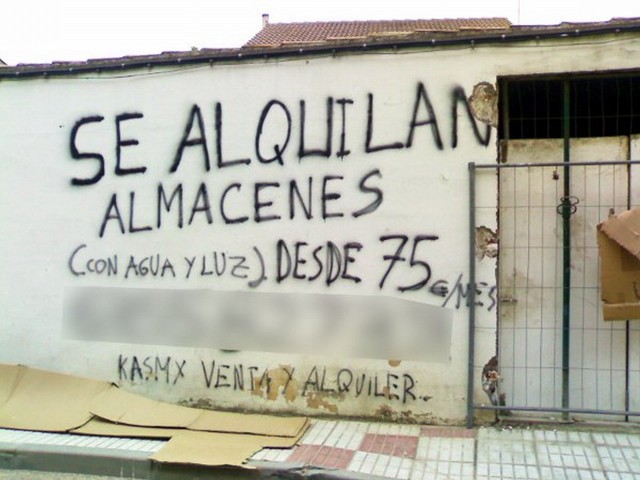 SE ALQUILAN
ALMACENES
(CON AGUA Y LUZ) DESDE 75 €/MES
KASMX VENTA Y ALQUILER..